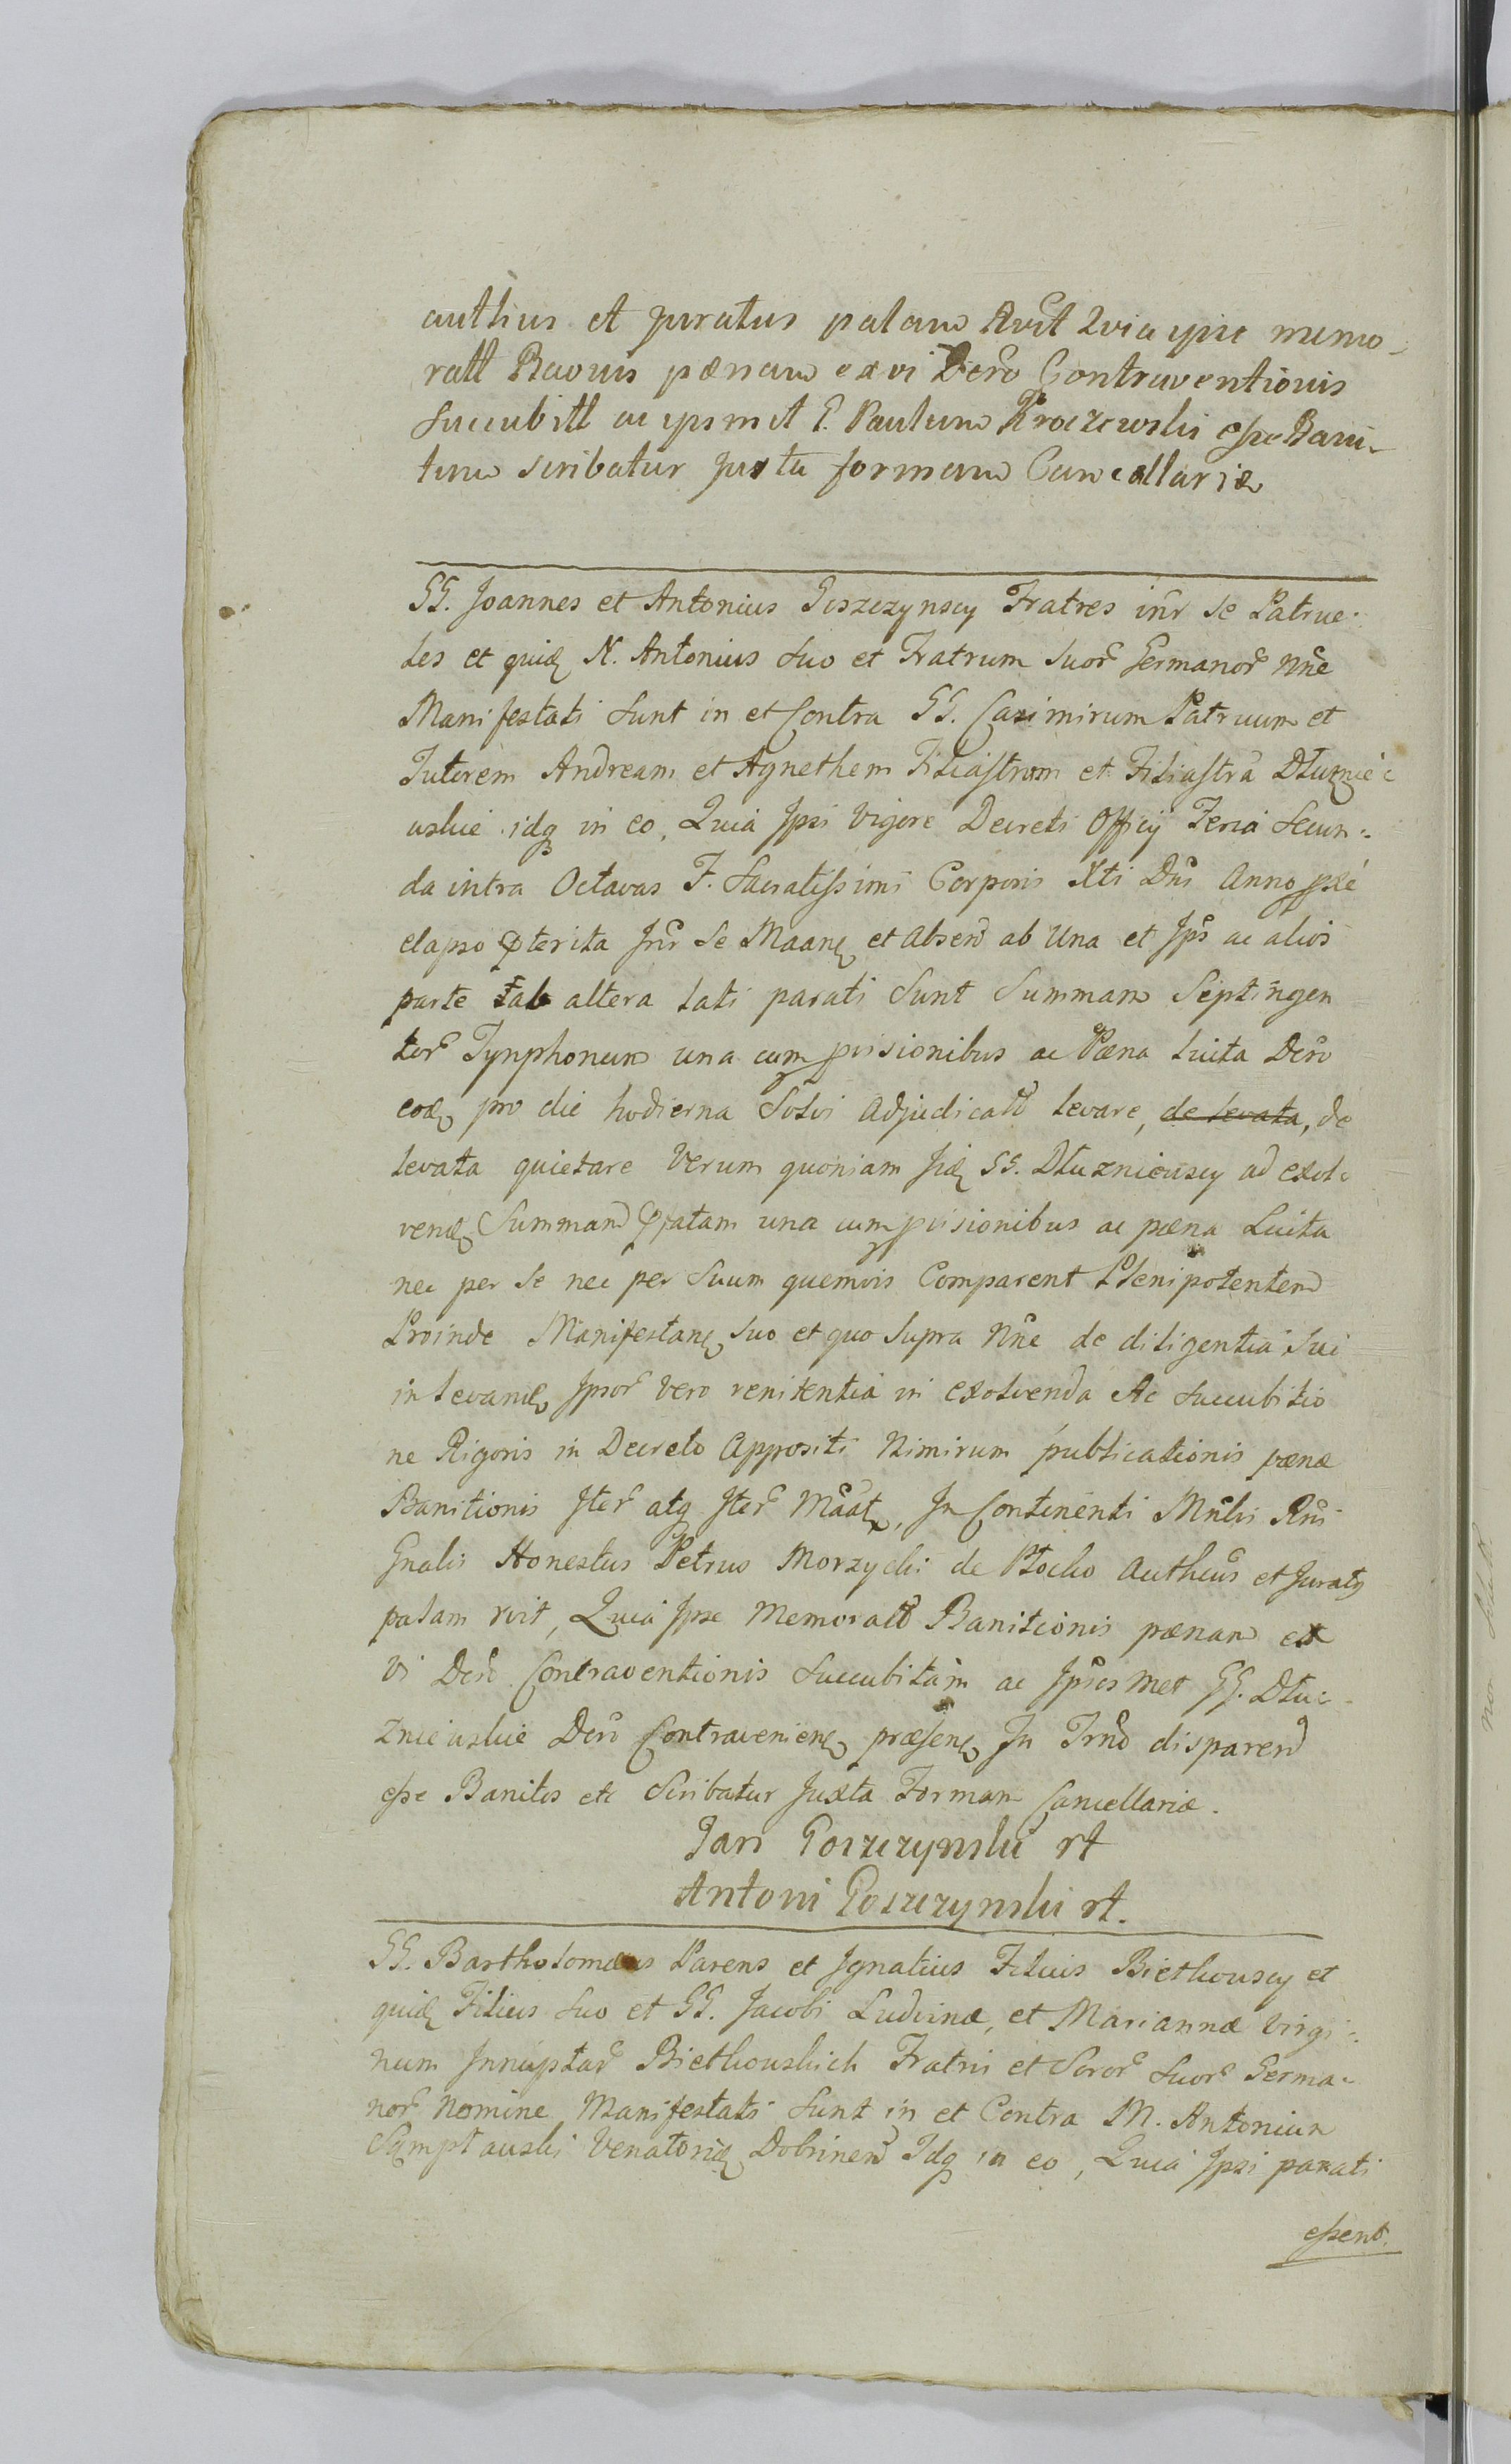 authius et juratus palam Rvit Quia ipse memo-
ratt Baonis pænam ex vi Dero Contraventionis
succubitt ac ipsmet G. Paulum Kroczewski esse Bani-
tum scribatur juxta formam Cancellariæ
GG. Joannes et Antonius Goszczynscy Fratres inr se Patrue-
les et quid N. Antonius suo et Fratrum suor Germanor nne
Manifestati sunt in et Contra GG. Casimirum Patruum et
Tutorem Andream et Agnethem Filiastrum et Filiastrã Dluznie-
uskie idq in eo, Quia Ipsi vigore Decreti Officij Feria Secun-
da intra Octavas F. Sacratissimi Corporis Xti Dni Anno pxe
elapso pterita Inr se Maanq et absen ab una et Ips ac alios
parte ab altera lati parati sunt Summam Septingen
tor Tynphonum una cum prisionibus ac Pæna luita Dero
eod pro die hodierna Solvi adjudicatt levare, de levata, de
levata quietare Verum quoniam iid GG. Dluznieuscy ad exol-
vend Summam pfatam una cum prisionibus ac pæna Luita
nec per se nec per suum quemvis Comparent Plenipotentem
Proinde Manifestanq suo et quo supra nne de diligentia sui
in levand Ipsor vero renitentia in exolvenda Ac succubitio
ne Rigoris in Decreto Appositi Nimirum publicationis pænæ
Banitionis Iter atq Iter Maatq, In Continenti Mnlis Rni
Gnalis Honestus Petrus Morzycki de Plocko Autheus et Juratq
palam rvit, Quia Ipse Memoratt Banitionis pænam ex
vi Dero Contraventionis succubitam ac Ipsosmet GG. Dlu-
znieuskie Dero Contravenienq præsenq In Trno disparend
esse Banitos etc Scribatur Juxta Formam Cancellariæ.
Jan Goszczynski rt
Antoni Goszczynski rt.
GG. Bartholomæus Parens et Ignatius Filius Bielkouscy et
quid Filius suo et GG. Jacobi Ludvinæ, et Mariannæ Virgi-
num Innuptar Bielkouskich Fratris et Soror suor Germa-
nor nomine Manifestati sunt in et Contra M. Antonium
Sumptauski Venatorid Dobrinen Idq in eo, Quia Ipsi parati
essent.